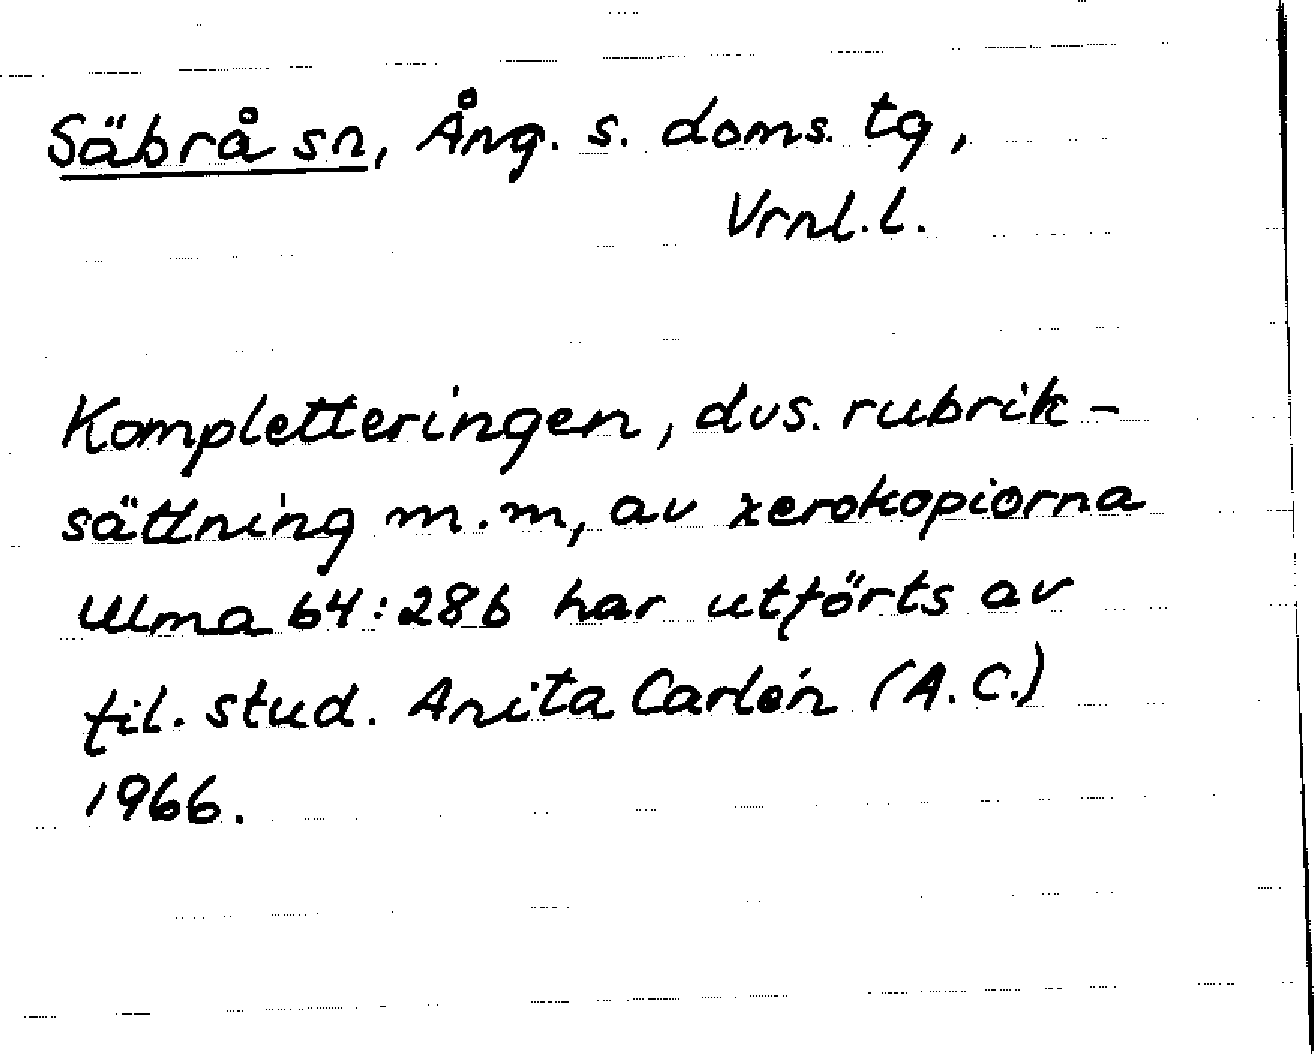 Säbrå sn, Ång. s. doms. tg,
Vrnl. l.
Kompletteringen, dvs. rubrik-
sättning m.m, av xerokopiorna
Ulma 64:286 har utförts av
fil. stud. Anita Carlén (A.C.)
1966.